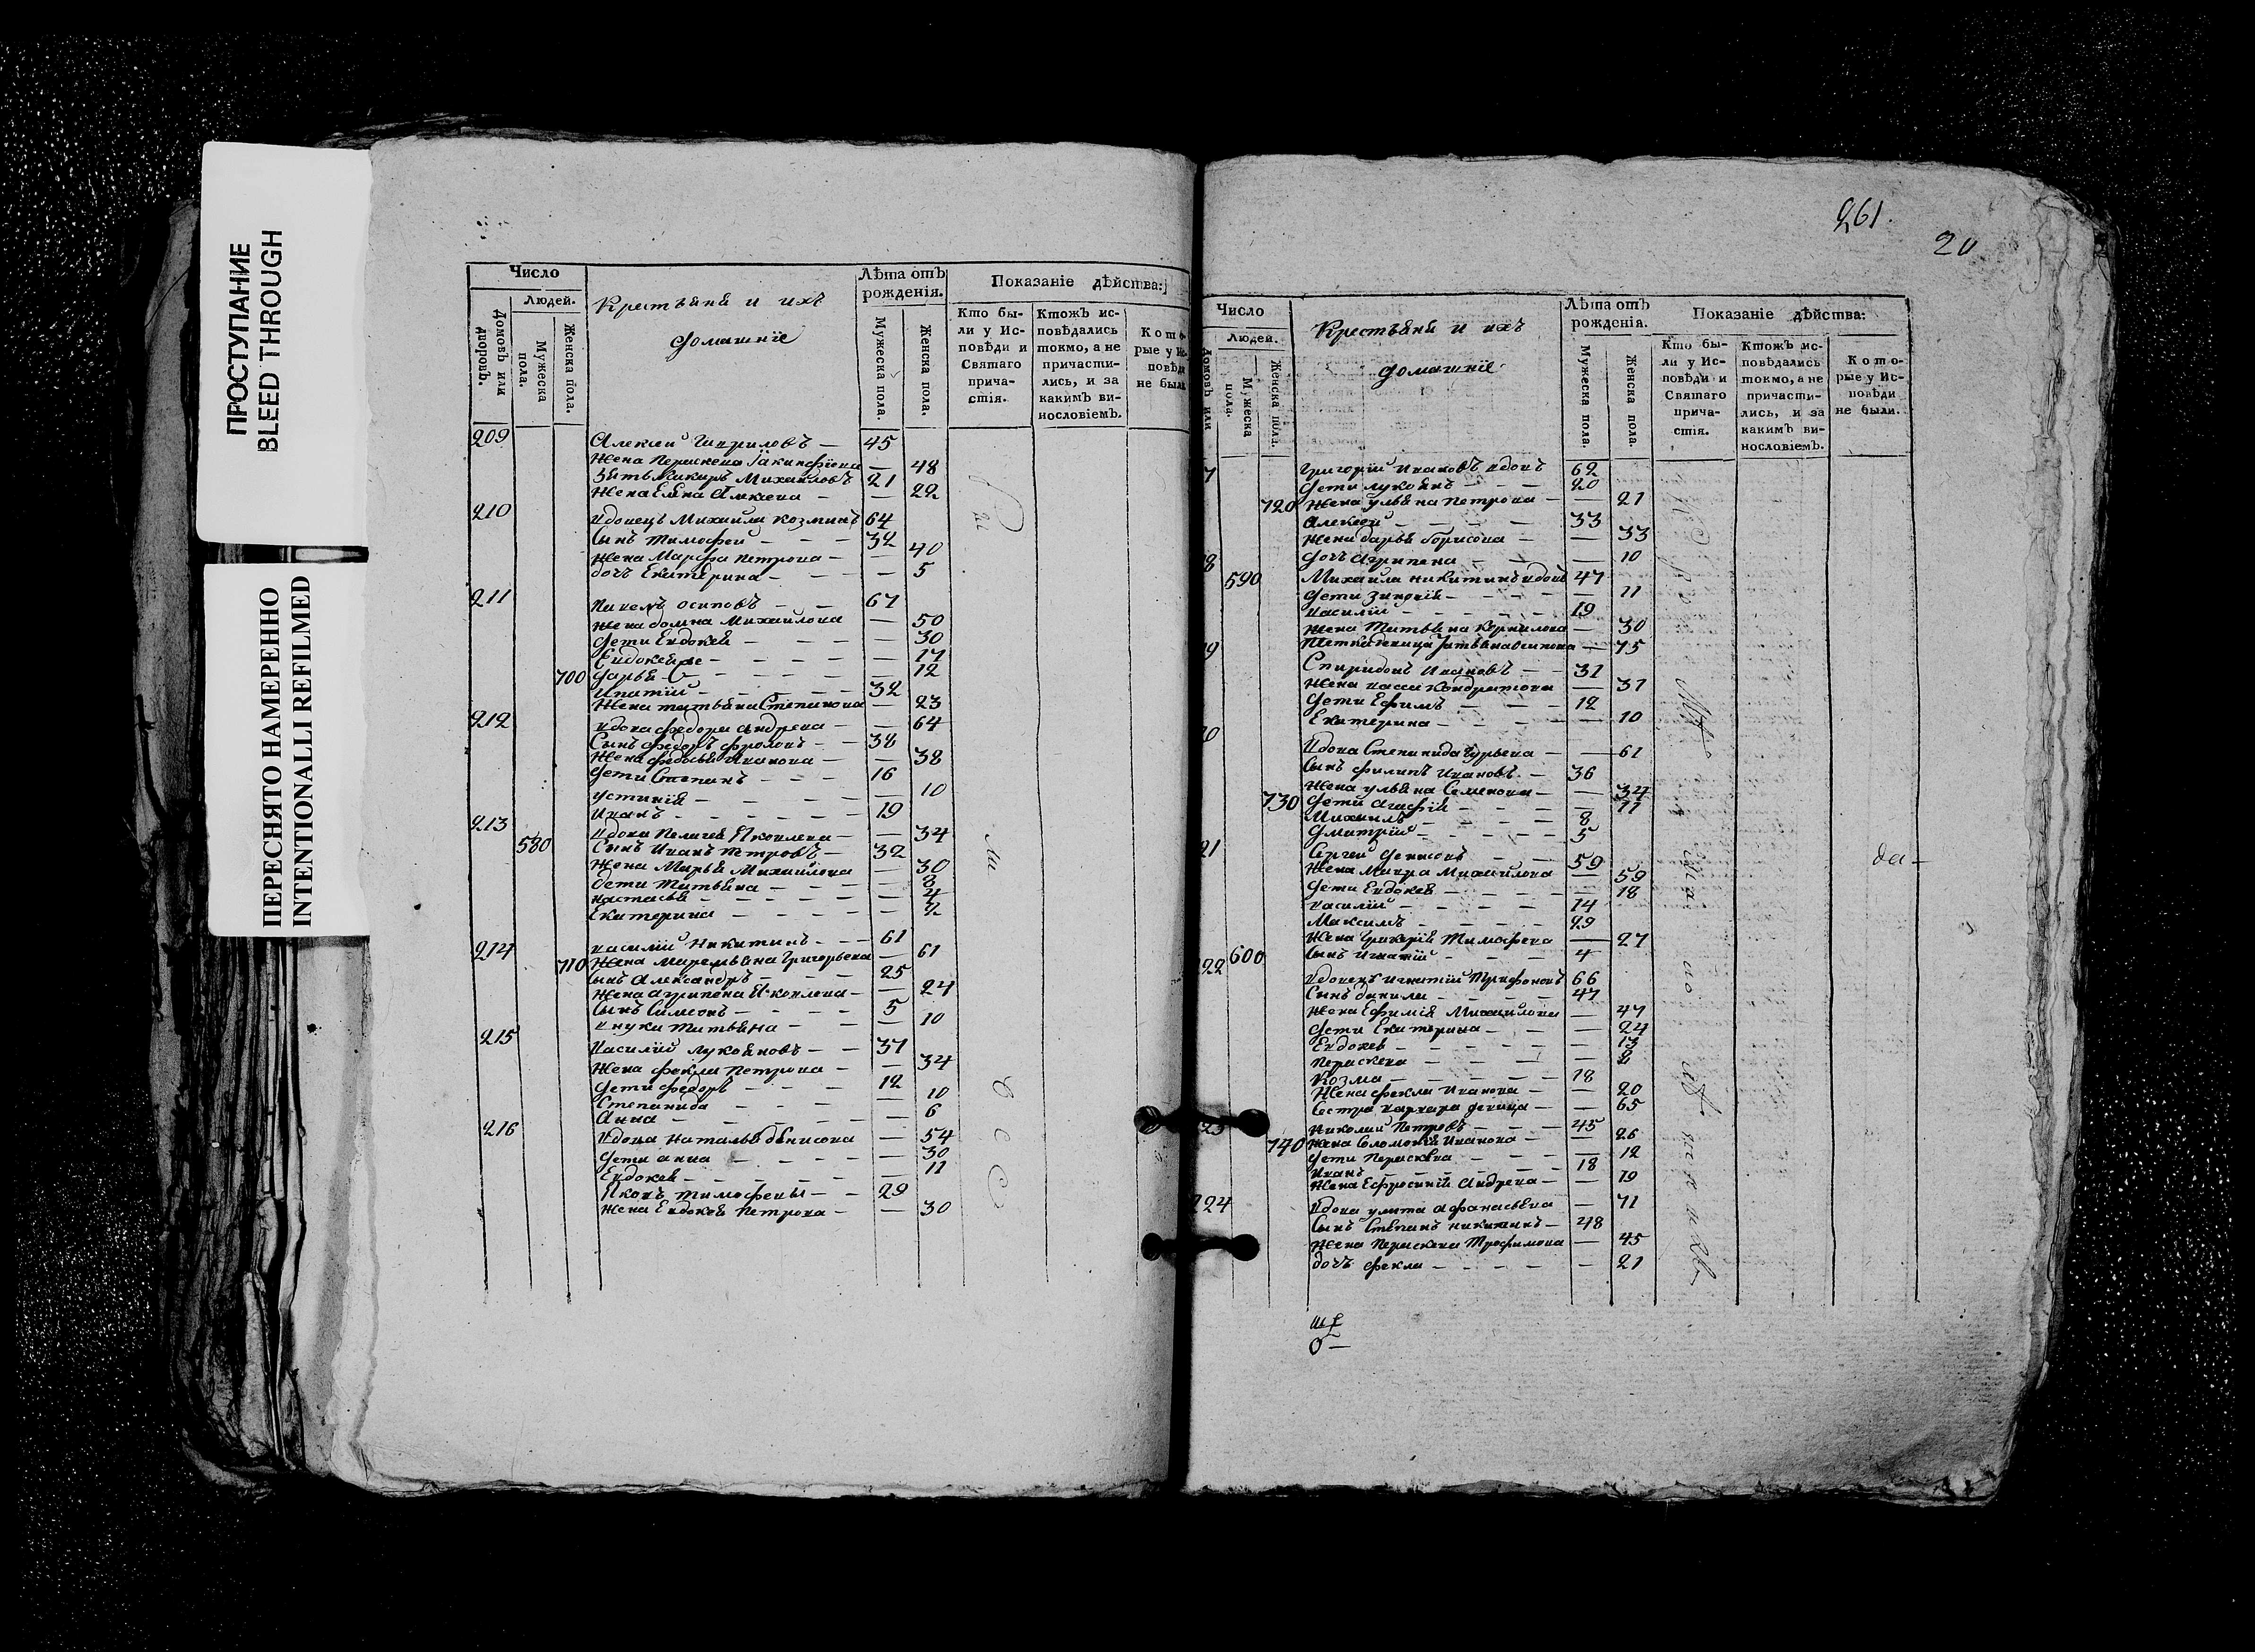 ПРОСТУПАНИЕ
BLEED THROUGH
ПЕРЕСНЯТО НАМЕРЕННО
INTENTIONALLI REFILMED
Число
Людей.
Домовъ или дворовъ.
Мужеска пола.
Женска пола.
Крестьяня и ихъ
домашнїе
Лѣта отъ рожденїя.
Мужеска пола.
Женска пола.
Показанїе дѣйства:
Кто бы-
ли у Ис-
повѣди и
Святаго
прича-
стїя.
Ктожъ ис-
повѣдались
токмо, а не
причасти-
лись, и за
какимъ ви-
нословїемъ.
Кото-
рые у Ис-
повѣди
не были
209 Алексей Гавриловъ — 45
Жена Параскева Іакинфїева — 48
Зять Макаръ Михайловъ 21
Жена Елена Алксева — — 22
210 вдовецъ Михайла Козминъ 64
Сынъ Тимофей — — — 32
Жена Марфа Петрова — — 40
дочь Екатерина — — — — 5
211 Павелъ Осиповъ — — 67
жена домна Михайлова — 50
дети Евдокея — — — — 30
Евдокея же — — — — — 17
700 дарья — — — — — 12
Игнатїй — — — — — 32
Жена татьяна Степанова — 23
212 вдова федора андрева — — 64
Сынъ федоръ фроловъ — — 38
Жена федосья Иванова — — 38
дети Степанъ — — — 16
устинїя — — — — — 10
Иванъ — — — — — 19
213 вдова Пелагея Яковлева — — 34
580 Сынъ Иванъ Петровъ — 32
Жена Марья Михайлова — 30
дети татьяна — — — — 8
настасья — — — — — — 4
Екатерина — — — — — 2
214 василїй Никитинъ — — — 61
710 Жена Маремьяна Григорьева — 61
сынъ Александръ — — — 25
Жена агрипена Яковлева — — 24
Сынъ Симеонъ — — — — 5
внука татьяна — — — 10
215 василїй лукояновъ — — 37
Жена фекла Петрова — — 34
дети федоръ — — — 12
Степанида — — — 10
Анна — — — — — — 6
216 вдова наталья денисова — 54
дети анна — — — — — 30
Евдокея — — — — — — 11
Яковъ тимофеевъ — — 29
Жена Евдокея Петрова — — 30
261.
20
Число
Людей.
Домовъ или
Мужеска пола.
Женска пола.
Крестьяня и ихъ
домашнїе
Лѣта отъ рожденїя.
Мужеска пола.
Женска пола.
Показанїе дѣйства:
Кто бы-
ли у Ис-
повѣди и
Святаго
прича-
стїя.
Ктожъ ис-
повѣдались
токмо, а не
причасти-
лись, и за
какимъ ви-
нословїемъ.
Кото-
рые у Ис-
повѣди
не были.
7 Григорїй Ивановъ вдовъ 62
дети лукоянъ — — — 20
720 Жена ульяна Петрова — — 21
Алексей — — — — 33
Жена дарья борисова — — 33
дочь агрипена — — — — 10
8 590 Михайла никитинъ вдовъ 47
дети — — — — 11
василїй — — — — — 19
жена татьяна Корнилова — 30
9 — 75
Спиридонъ Ивановъ — — 31
Жена васса Кондратова — 31
дети Ефимъ — — — 12
Екатерина — — — — — 10
0 вдова Степанида Гурьева — — 61
Сынъ филипъ Ивановъ — 36
Жена ульяна Семенова — — 34
730 дети агафїя — — — — 11
Михаилъ — — — — 8
дмитрїй — — — — — 5
21 Сергей денисовъ — — 59
Жена Мавра Михайлова — 59
дети Евдокея — — — — — 18
василїй — — — — — 14
Максимъ — — — — — 29
Жена Гликерїя Тимофева — 27
600 сынъ игнатїй — — — 4
222 вдовецъ игнатїй Трифоновъ 66
Сынъ данила — — — — 47
Жена Ефимїя Михайлова — 47
дети Екатерина — — — 24
Евдокея — — — — — — 13
Параскева — — — — — 8
Козма — — — — — 18
Жена фекла Иванова — — 20
Сестра варвара девица — — 65
223 Николай Петровъ — — 45
740 жена Соломонїя Иванова — — 26
дети Параскева — — — — 12
Иванъ — — — — — 18
Жена Ефросинїя Андрева — — 19
224 вдова улита афанасьева — 71
Сынъ Степанъ никитинъ — 48
Жена Параскева Трофимова — 45
дочь фекла — — — — — 21
да —